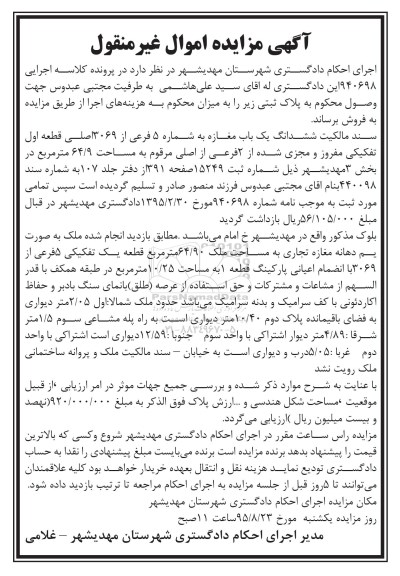 آگهی مزایده اموال غیرمنقول
اجرای احکام دادگستری شهرستان مهدیشهر در نظر دارد در پرونده کلاسه اجرایی
۹۴۰۶۹۸این دادگستری له اقای سید علی‌هاشمی به طرفیت مجتبی عبدوس جهت
وصول محکوم به پلاک ثبتی زیر را به میزان محکوم به هزینه‌های اجرا از طریق مزایده
به فروش برساند.
سند مالکیت ششدانگ یک باب مغازه به شماره ۵ فرعی از ۳۰۶۹اصلی قطعه اول
تفکیکی مفروز و مجزی شده از ۲فرعی از اصلی مرقوم به مساحت ۶۴/۹ مترمربع در
بخش ۳مهدیشهر ذیل شماره ثبت ۱۵۲۴۹صفحه ۳۹۱از دفتر جلد ۱۰۷به شماره سند
۴۴۰۰۹۸بنام اقای مجتبی عبدوس فرزند منصور صادر و تسلیم گردیده است سپس تمامی
مورد ثبت به موجب نامه شماره ۹۴۰۶۹۸مورخ ۱۳۹۵/۲/۳۰دادگستری مهدیشهر در قبال
مبلغ ۵۶/۱۰۵/۰۰۰ریال بازداشت گردید
بلوک مذکور واقع در مهدیشهر خ امام می‌باشد .مطابق بازدید انجام شده ملک به صورت
یم دهانه مغازه تجاری به مساحت ملک ۶۴/۹۰مترمربع قطعه یک تفکیکی ۵فرعی از
۳۰۶۹با انضمام اعیانی پارکینگ قطعه ۱به مساحت ۱۰/۲۵مترمربع در طبقه همکف با قدر
السهم از مشاعات و مشترکات و حق استفاده از عرصه (طلق)بانمای سنگ بادبر و حفاظ
اکاردئونی با کف سرامیک و بدنه سرامیک می‌باشد حدود ملک شمالا:اول ۲/۰۵متر دیواری
به فضای باقیمانده پلاک دوم ۱۰/۴۰متر دیواری است به راه پله مشاعی سوم ۱/۵متر
شرقا :۴/۸۹متر دیوار اشتراکی با واحد سوم جنوبا :۱۲/۵۹دیواری است اشتراکی با واحد
دوم غربا :۵/۰۵درب و دیواری است به خیابان – سند مالکیت ملک و پروانه ساختمانی
ملک رویت نشد
با عنایت به شرح موارد ذکر شده و بررسی جمیع جهات موثر در امر ارزیابی ،از قبیل
موقعیت ،مساحت شکل هندسی و ...ارزش پلاک فوق الذکر به مبلغ ۹۲۰/۰۰۰/۰۰۰(نهصد
و بیست میلیون ریال )ارزیابی می‌گردد.
مزایده راس ساعت مقرر در اجرای احکام دادگستری مهدیشهر شروع وکسی که بالاترین
قیمت را پیشنهاد بدهد برنده مزایده است برنده می‌بایست مبلغ پیشنهادی را نقدا به حساب
دادگستری تودیع نماید هزینه نقل و انتقال بعهده خریدار خواهد بود کلیه علاقمندان
می‌توانند تا ۵روز قبل از جلسه مزایده به اجرای احکام مراجعه تا ترتیب بازدید داده شود.
مکان مزایده اجرای احکام دادگستری شهرستان مهدیشهر
روز مزایده یکشنبه مورخ ۹۵/۸/۲۳ساعت ۱۱صبح
مدیر اجرای احکام دادگستری شهرستان مهدیشهر – غلامی